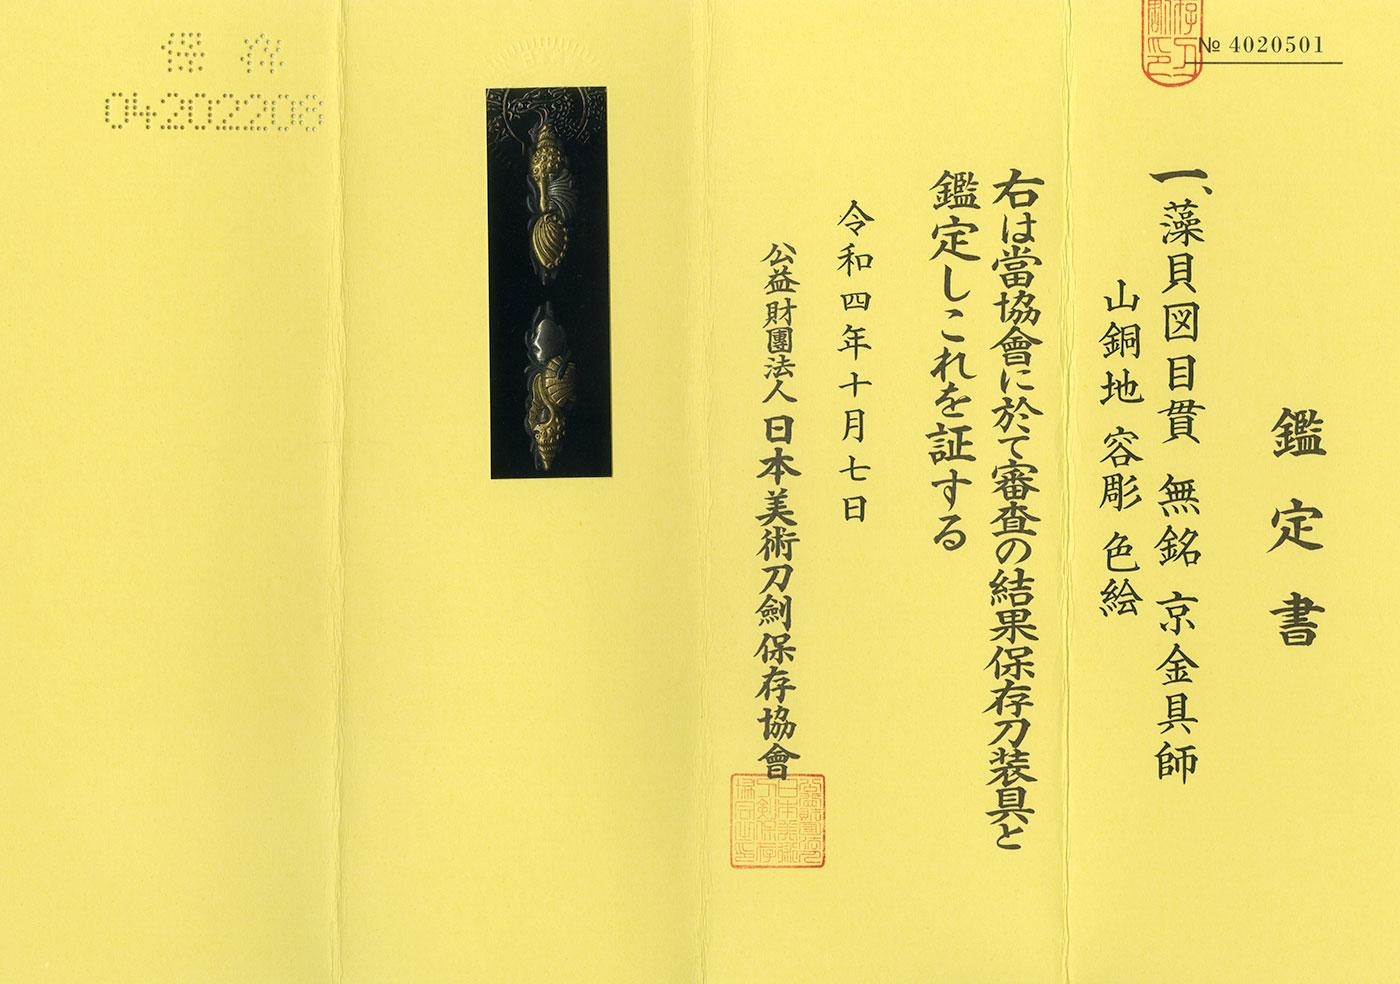 № 4020501
鑑定書
一、藻貝図目貫 無銘 京金具師
山銅地 容彫 色絵
右は當協會に於て審査の結果保存刀装具と
鑑定しこれを証する
令和四年十月七日
公益財團法人 日本美術刀劍保存協會
保存
04202208